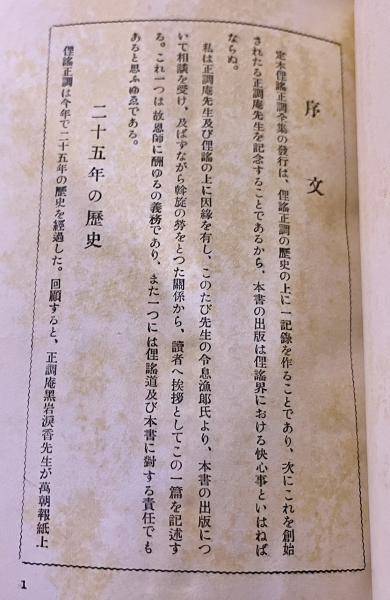 序文
定本俚謠正調全集の發行は、俚謠正調の歷史の上に一記錄を作ることであり、次にこれを創始
されたる正調庵先生を記念することであるから、本書の出版は俚謠界における快心事といはねば
ならぬ。
私は正調庵先生及び俚謠の上に因緣を有し、このたび先生の令息漁郞氏より、本書の出版につ
いて相談を受け、及ばずながら斡旋の勞をとつた關係から、讀者へ挨拶としてこの一篇を記述す
る。これ一つは故恩師に酬ゆるの義務であり、また一つには俚謠道及び本書に對する責任でも
あると思ふゆゑである。
二十五年の歷史
俚謠正調は今年で二十五年の歷史を經過した。回顧すると、正調庵黑岩淚香先生が萬朝報紙上
1